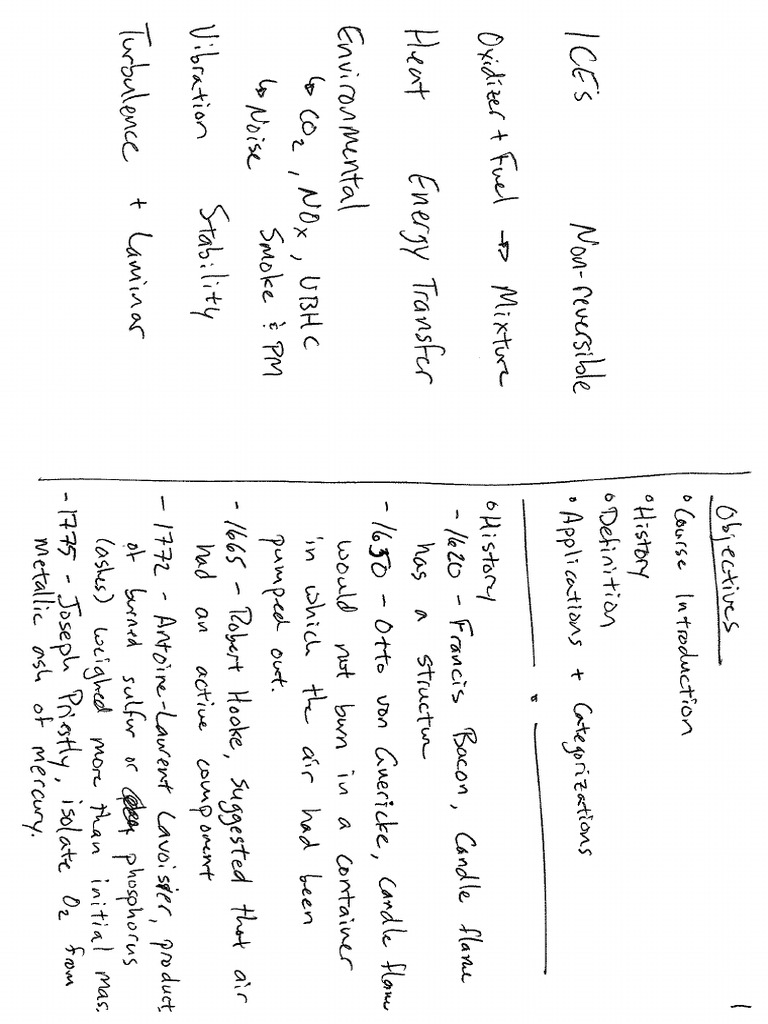 1
Objectives
• Course Introduction
• History
• Definition
• Applications + Categorizations
• History
- 1620 - Francis Bacon, Candle flame
has a structure
- 1650 - Otto von Guericke, Candle flame
would not burn in a container
in which the air had been
pumped out.
- 1665 - Robert Hooke, suggested that air
had an active component
- 1772 - Antoine-Laurent Lavoisier, product
of burned sulfur or phosphorus
(ashes) weighed more than initial mas.
- 1775 - Joseph Priestly, isolate O2 from
metallic ash of mercury.
ICEs Non-reversible
Oxidizer + Fuel → Mixture
Heat Energy Transfer
Environmental
↳ CO2, NOx, UBHC
↳ Noise Smoke & PM
Vibration Stability
Turbulence + Laminar